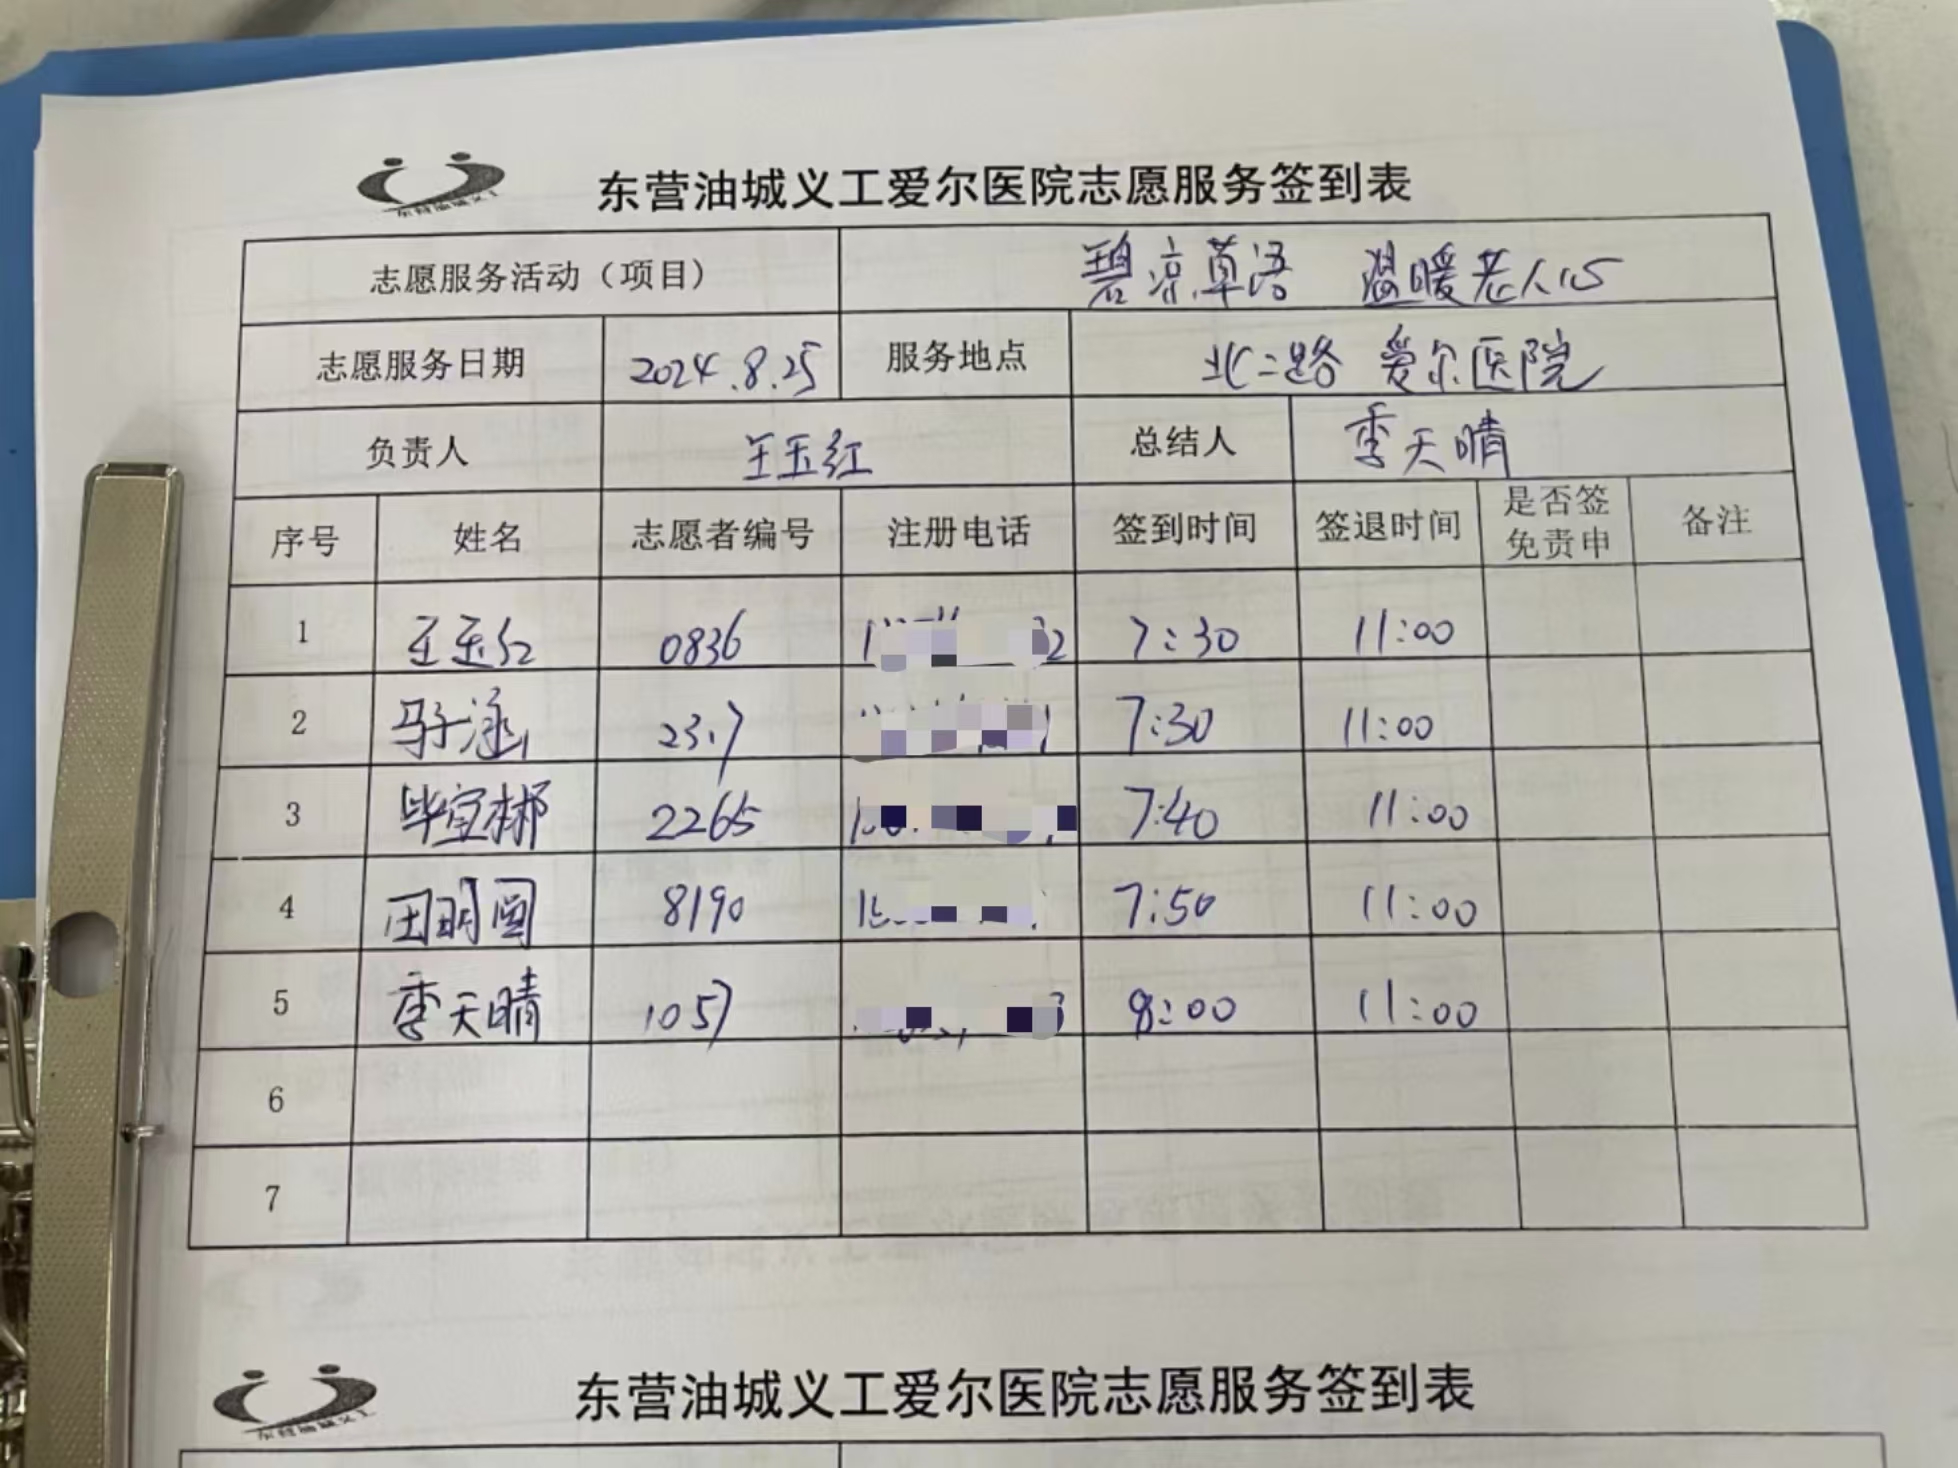 东营油城义工
东营油城义工爱尔医院志愿服务签到表
志愿服务活动（项目） 碧凉草语 温暖老人心
志愿服务日期 2024.8.25 服务地点 北二路 爱尔医院
负责人 王玉红 总结人 季天晴
序号 姓名 志愿者编号 注册电话 签到时间 签退时间 是否签免责申 备注
1 王玉红 0836 7:30 11:00
2 马子涵 7:30 11:00
3 毕宜彬 2265 7:40 11:00
4 田明圆 8190 7:50 11:00
5 季天晴 1057 8:00 11:00
6
7
东营油城义工
东营油城义工爱尔医院志愿服务签到表